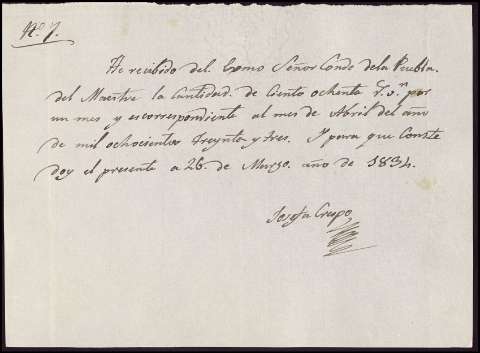 N.o 7.
He recibido del Exmo Señor Conde de la Puebla
del Maestre la Cantidad de Ciento ochenta r.s v.n por
un mes y es correspondiente al mes de Abril del año
de mil ochocientos Treynta y tres. Y para que Conste
doy el presente a 26 de Marzo año de 1834.
Josefa Crespo